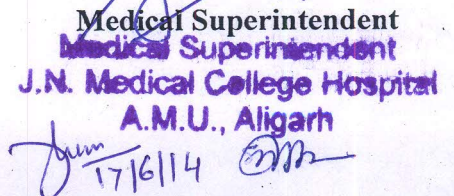 Medical Superintendent
Medical Superintendent
J.N. Medical College Hospital
A.M.U., Aligarh
17/6/14